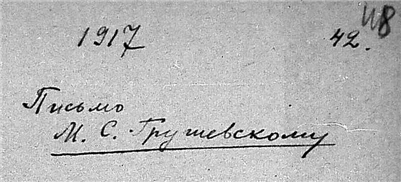 1917 42.
Письмо
М. С. Грушевскому